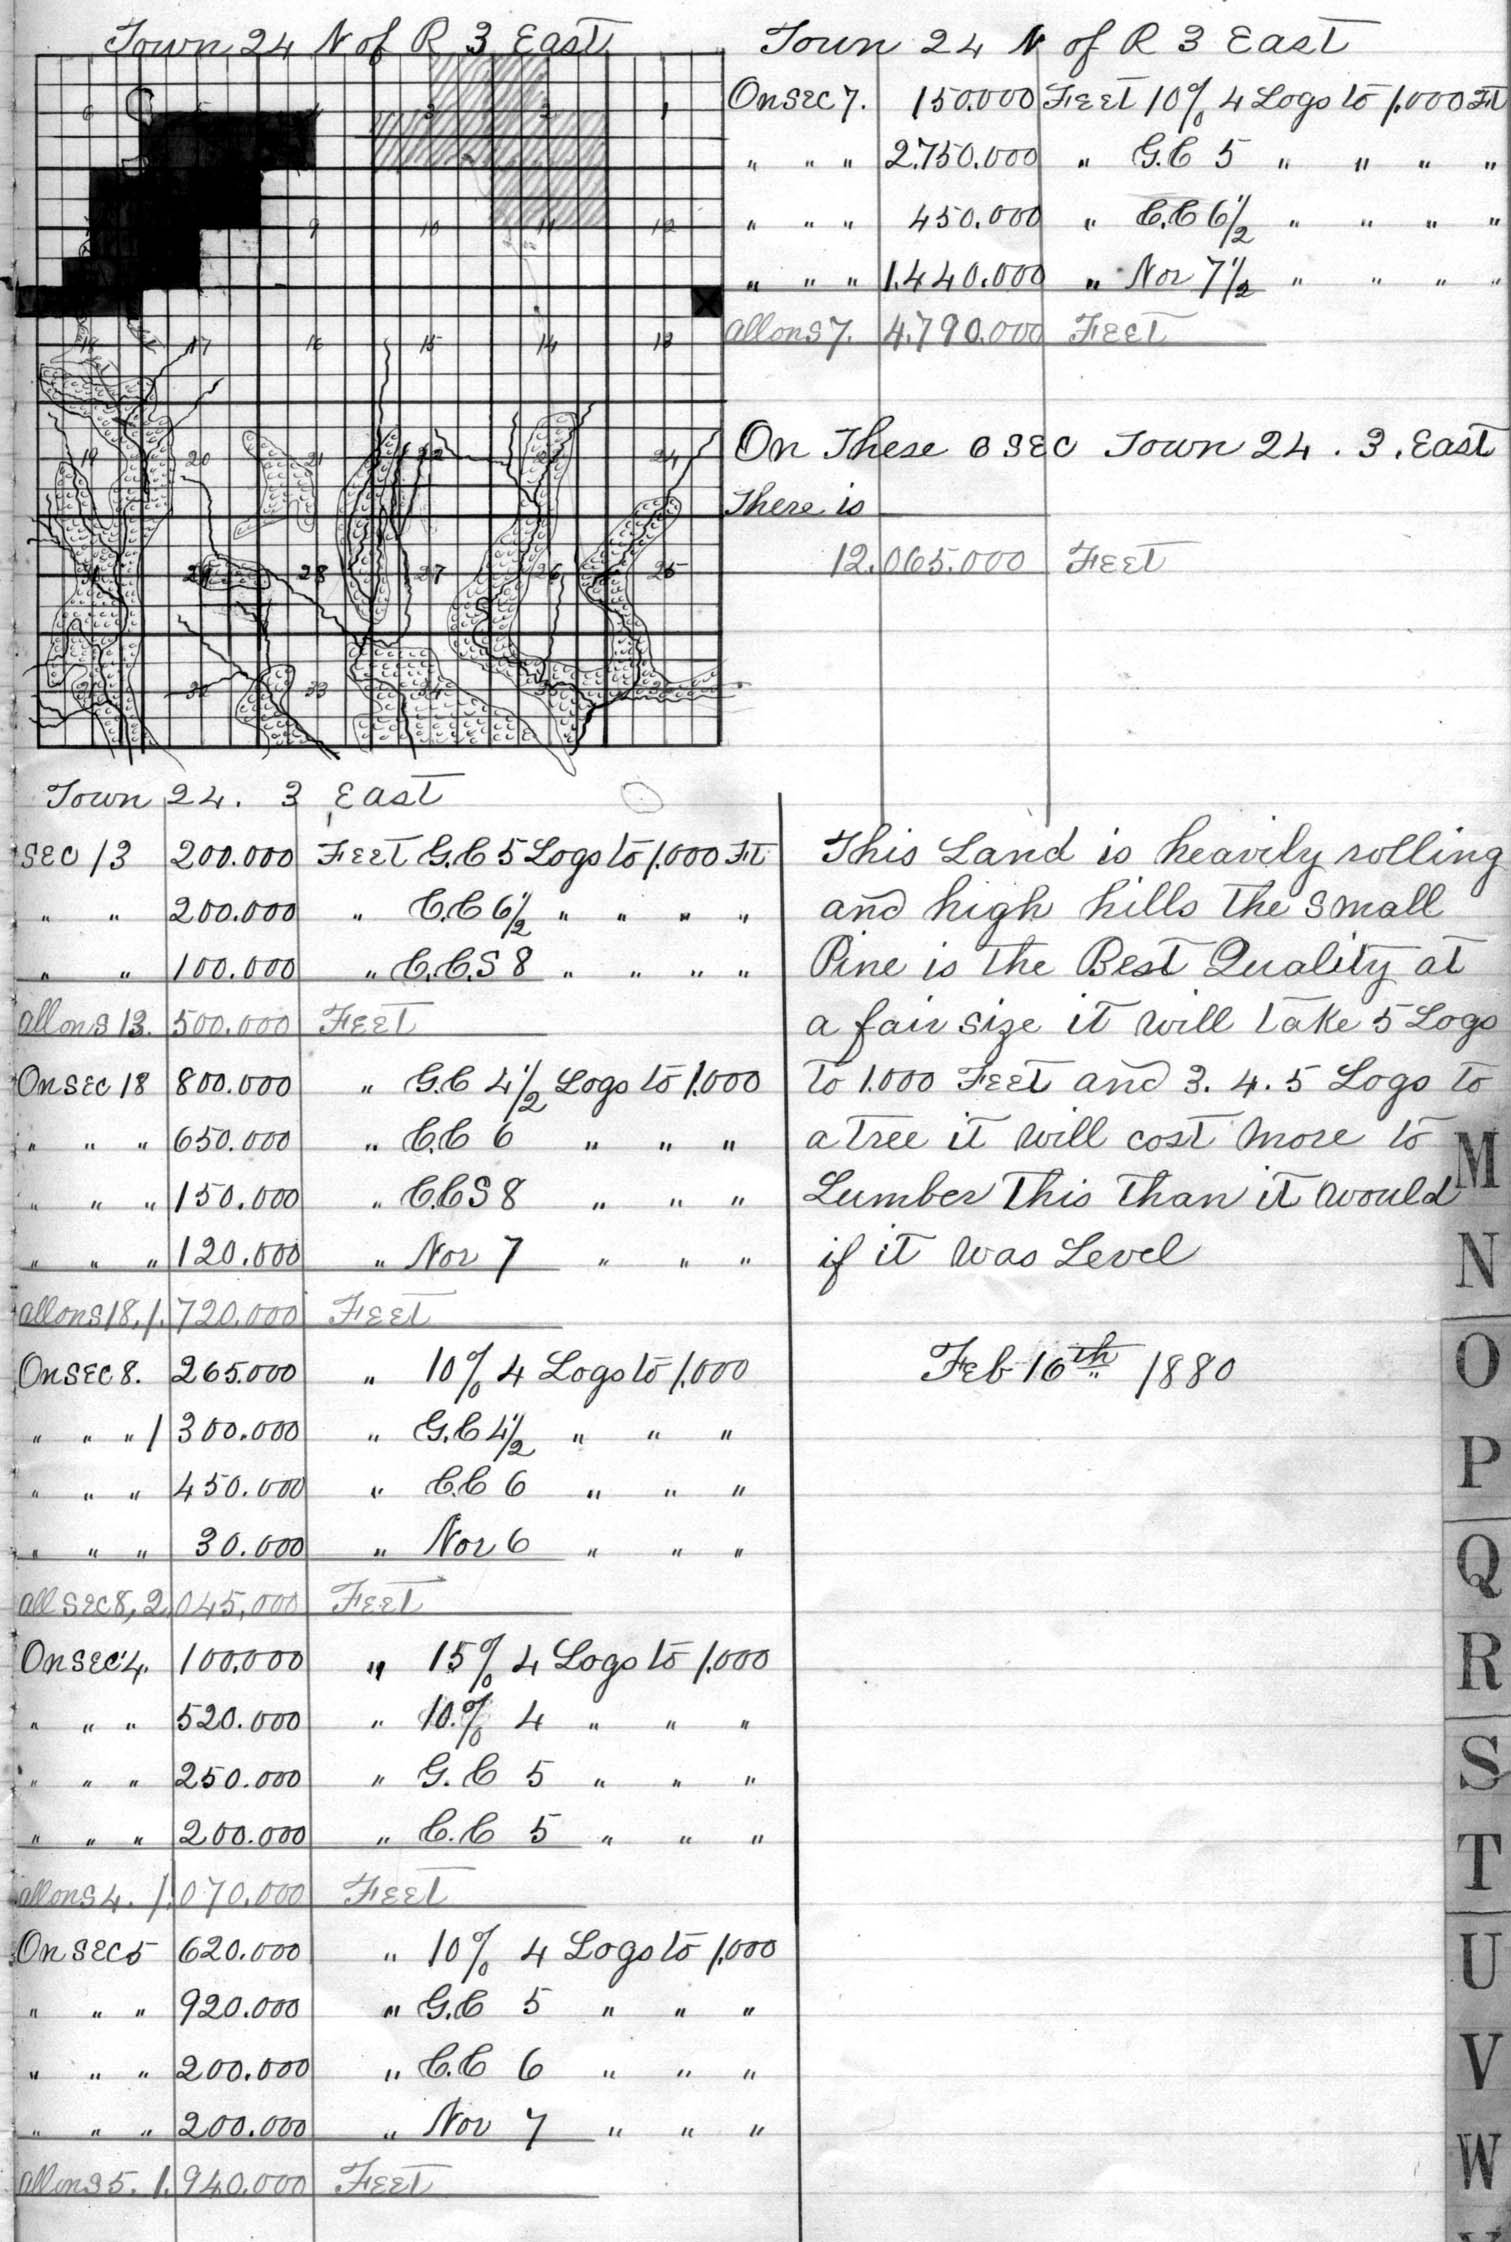 Town 24 N of R 3 East
6 5 4 3 2 1
9 10 11 12
18 17 16 15 14 13
19 20 21 22 23 24
29 28 27 26 25
31 32 33 34 35
Town 24. 3 East
Sec 13 200.000 Feet G.C 5 Logs to 1,000 Ft
" " 200.000 " C.C 6 1/2 " " " "
" " 100.000 " C.C.S 8 " " " "
all on S 13. 500.000 Feet
On Sec 18 800.000 " G.C 4 1/2 Logs to 1,000
" " " 650.000 " C.C 6 " " "
" " " 150.000 " C.C S 8 " " "
" " " 120.000 " Nor 7 " " "
all on S 18, 1.720.000 Feet
On Sec 8. 265.000 " 10% 4 Logs to 1,000
" " " 1300.000 " G.C 4 1/2 " " "
" " " 450.000 " C.C 6 " " "
" " " 30.000 " Nor 6 " " "
all Sec 8, 2,045,000 Feet
On Sec 4. 100.000 " 15% 4 Logs to 1,000
" " " 520.000 " 10.% 4 " " "
" " " 250.000 " G.C 5 " " "
" " " 200.000 " C.C 5 " " "
all on S 4. 1.070.000 Feet
On Sec 5 620.000 " 10% 4 Logs to 1,000
" " " 920.000 " G.C 5 " " "
" " " 200.000 " C.C 6 " " "
" " " 200.000 " Nor 7 " " "
all on S 5. 1.940.000 Feet
Town 24 N of R 3 East
On Sec 7. 150.000 Feet 10% 4 Logs to 1,000 Ft
" " " 2.750.000 " G.C 5 " " " "
" " " 450.000 " C.C 6 1/2 " " " "
" " " 1.440.000 " Nor 7 1/2 " " " "
all on S 7. 4.790.000 Feet
On These 6 Sec Town 24 . 3 . East
There is
12.065.000 Feet
This Land is heavily rolling
and high hills the small
Pine is the Best Quality at
a fair size it will take 5 Logs
to 1.000 Feet and 3. 4. 5 Logs to
a tree it will cost more to
Lumber This than it would
if it was Level
Feb 16th 1880
M
N
O
P
Q
R
S
T
U
V
W